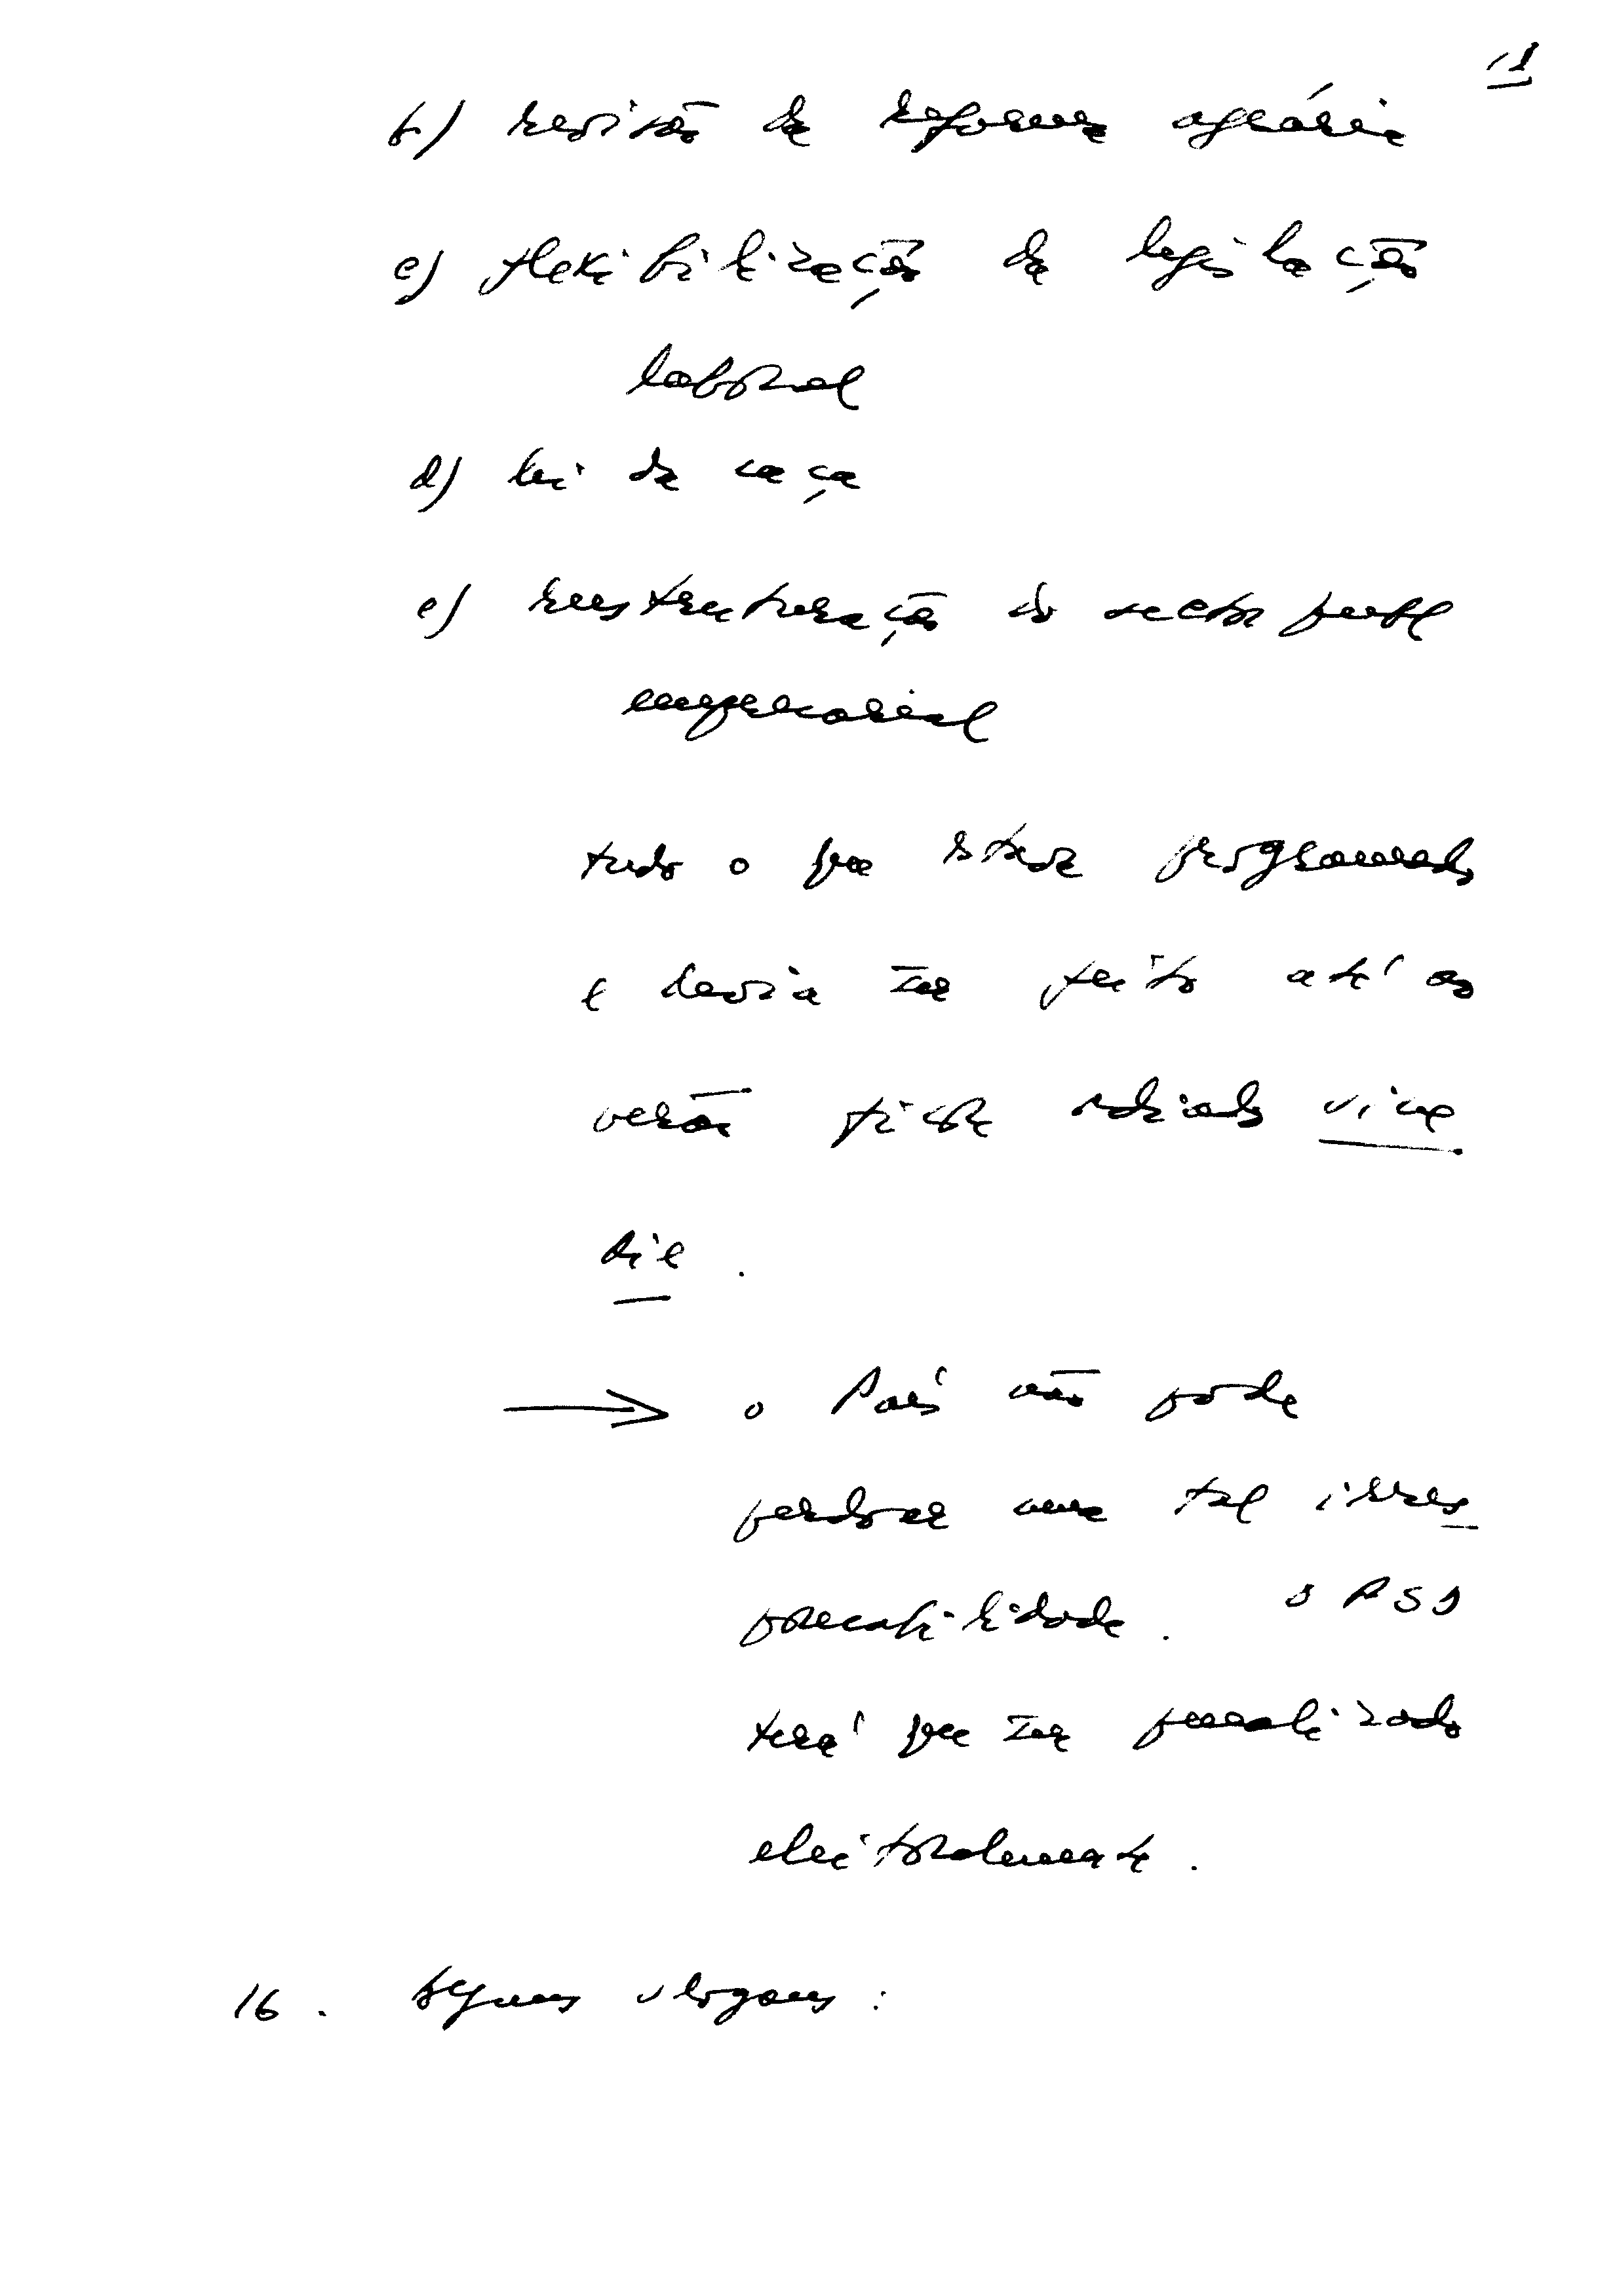 b) revisão da reforma agrária
c) flexibilização da legislação
laboral
d) lei da caça
e) reestruturação do sector publ
empresarial
tudo o que estava programado
e devia ser feito até ao
verão fica adiado sine
die.
→ o País não pode
perdoar uma tal irres
ponsabilidade. O PSD
terá que ser penalizado
eleitoralmente.
16. Alguns slogans: